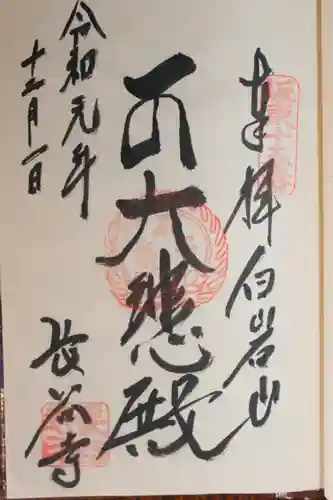 奉拝 白岩山
大悲殿
令和元年
十二月一日
長谷寺